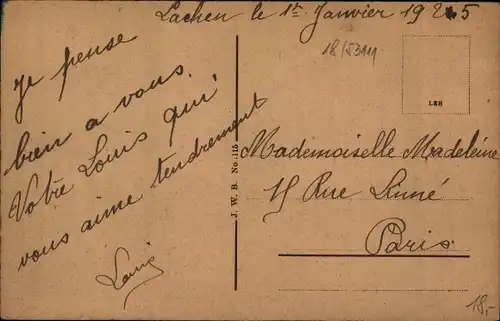 Lachen le 1er Janvier 1925
18/53111
Je pense
bien a vous.
Votre Louis qui
vous aime tendrement
Louis
J. W. B. No. 115
LEH
Mademoiselle Madeleine
Rue Linné
Paris
18,-